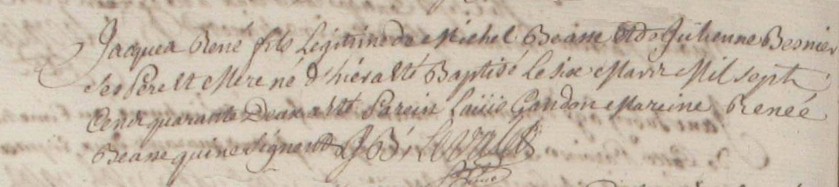 Jacques René fils Legitime de Michel Beasse et de Julienne Besnier
ses Pere et Mere né d'hier a Eté Baptisé Le six Mars Mil sept
Cens quarante Deux a Eté Parein Gandon Mareine Renée
Beasse qui ne signent